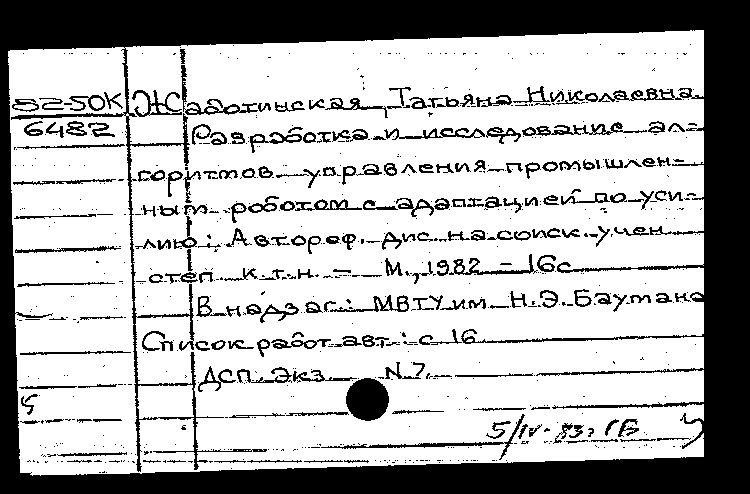 82-50К Жаботинская, Татьяна Николаевна
6482 Разработка и исследование ал-
горитмов управления промышлен-
ным роботом с адаптацией по уси-
лию: Автореф. дис. на соиск. учен
степ к.т.н. – М., 1982 – 16с
В надзаг.: МВТУ им. Н.Э. Баумана
Список работ авт: с 16
ДСП. Экз. N 7.
5/IV-83г